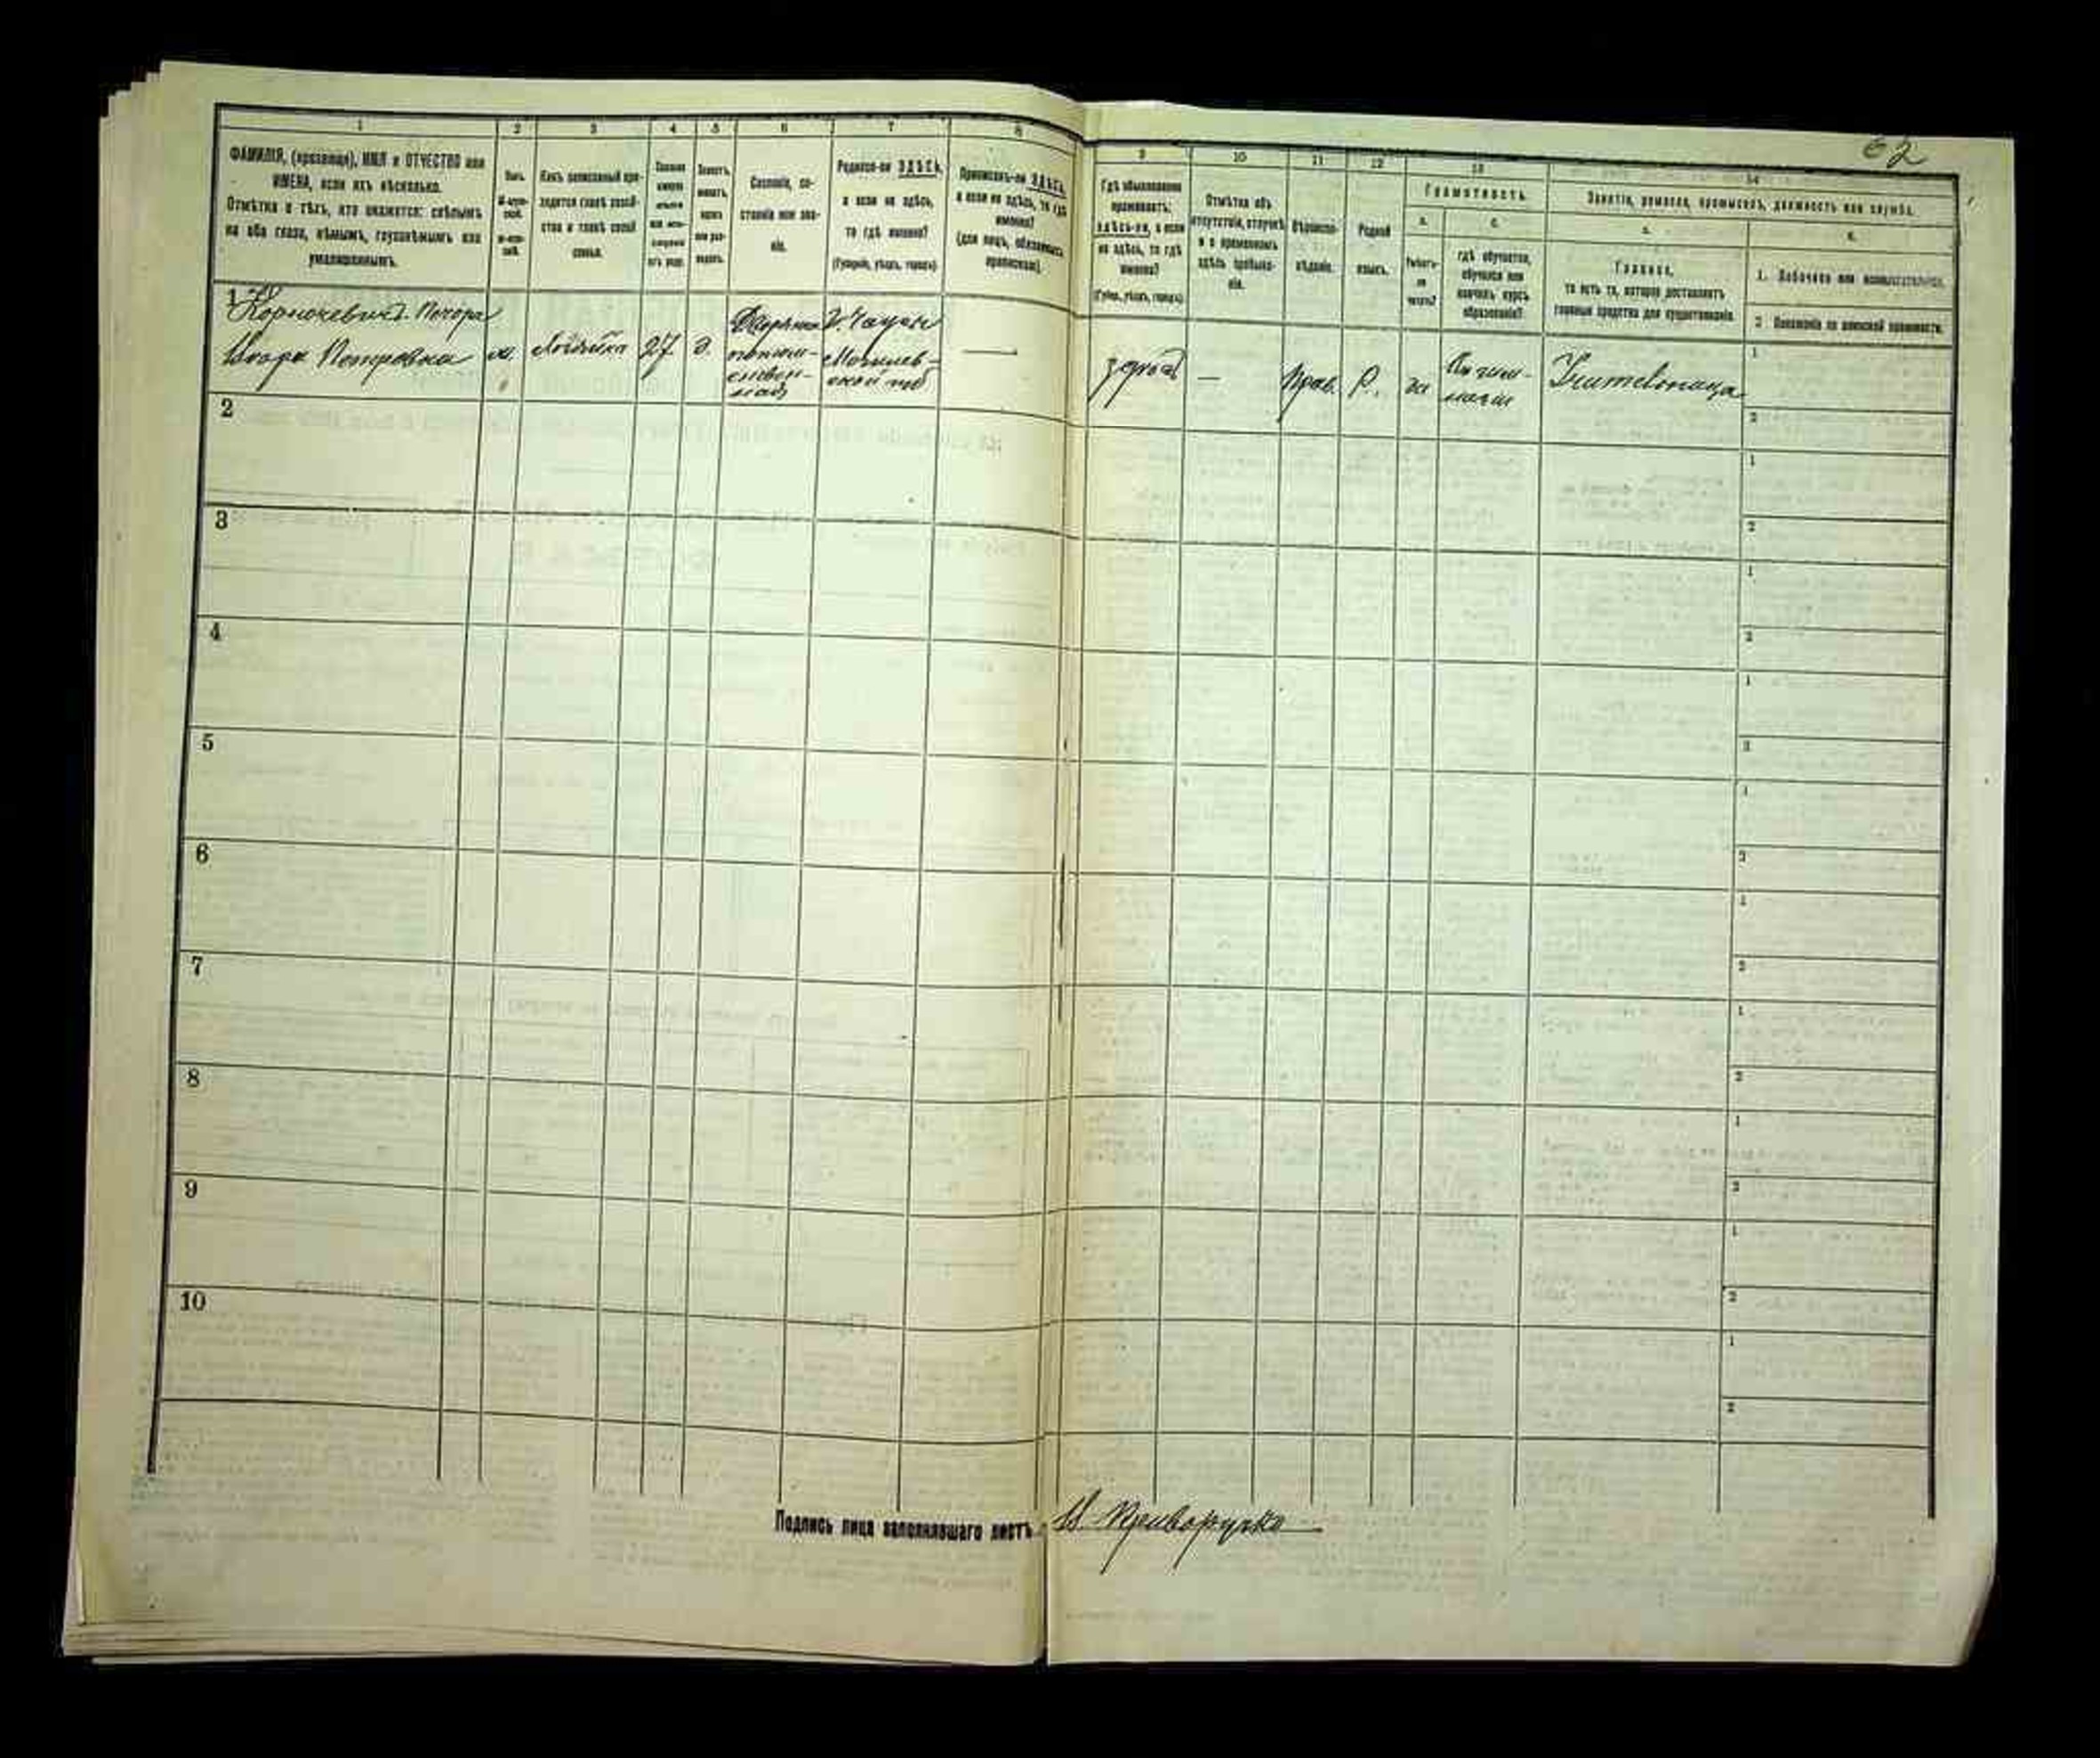 62
1 2 3 4 5 6 7 8
ФАМИЛІЯ, (прозвище), ИМЯ и ОТЧЕСТВО или
ИМЕНА, если ихъ нѣсколько.
Отмѣтка о тѣхъ, кто окажется: слѣпымъ
на оба глаза, нѣмымъ, глухонѣмымъ или
умалишеннымъ.
Полъ.
Какъ записанный при-
ходится главѣ хозяй-
ства и главѣ своей
семьи.
Сословіе, со-
стояніе или зва-
ніе.
Родился-ли ЗДѢСЬ,
а если не здѣсь,
то гдѣ именно?
(Губернія, уѣздъ, городъ).
Приписанъ-ли ЗДѢСЬ,
а если не здѣсь, то гдѣ
именно?
(для лицъ, обязанныхъ
припиской).
9 10 11 12 13 14
Гдѣ обыкновенно
проживаетъ:
здѣсь-ли, а если
не здѣсь, то гдѣ
именно?
(Губер., уѣздъ, городъ).
Отмѣтка объ
отсутствіи, отлучкѣ
и о временномъ
здѣсь пребыва-
ніи.
Вѣроиспо-
вѣданіе.
Родной
языкъ.
Грамотность.
а. б.
Умѣетъ-
ли
читать?
гдѣ обучается,
обучался или
кончилъ курсъ
образованія?
Занятіе, ремесло, промыселъ, должность или служба.
а. б.
Главное,
то есть то, которое доставляетъ
главныя средства для существованія.
1. Побочное или вспомогательное.
2. Положеніе по воинской повинности.
1
Петровна
27
д.
Могилев-
ской губ
—
—
Прав.
Р.
да
Въ гим-
назіи
Учительница
1
2
2
1
2
3
1
2
4
1
2
5
1
2
6
1
2
7
1
2
8
1
2
9
1
2
10
1
2
Подпись лица заполнявшаго листъ: И. Криворучко